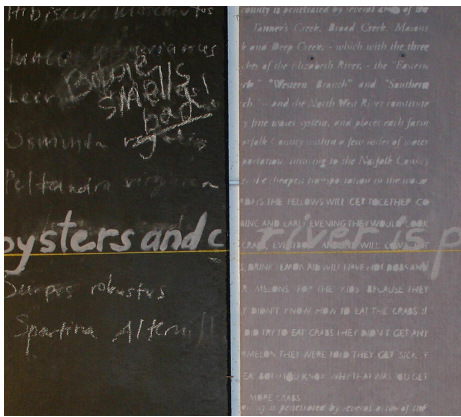 Hibiscus
Juncus
Leer
Bowie
SMElls
bad!
Osmunda regalis
Peltandra virginica
oysters and c
Scirpus robustus
Spartina Altern
county is penetrated by several arms of the
Tanner's Creek, Broad Creek, Masons
k and Deep Creek, - which with the three
hes of the Elizabeth River, - the "Eastern
"Western Branch" and "Southern
ch" - and the North West River constitute
y fine water system, and places each farm
orfolk County within a few miles of water
portation, insuring to the Norfolk County
cheapest transportation in the
THE FELLOWS WILL GET TOGETHER. GO
AND EARLY EVENING THEY WOULD COOK
CRABS. EVERYBODY WILL COME
river is p
DRINK LEMON AID WILL HAVE HOT DOGS AND
R MELONS FOR THE KIDS BECAUSE THEY
T DIDN'T KNOW HOW TO EAT THE CRABS. IF
DID TRY TO EAT CRABS THEY DIDN'T GET ANY
RMELON THEY WERE TOLD THEY GET SICK. Y
EAT BOTH. YOU KNOW WHY THAT WAS
MORE CRABS.
is penetrated by several arms of